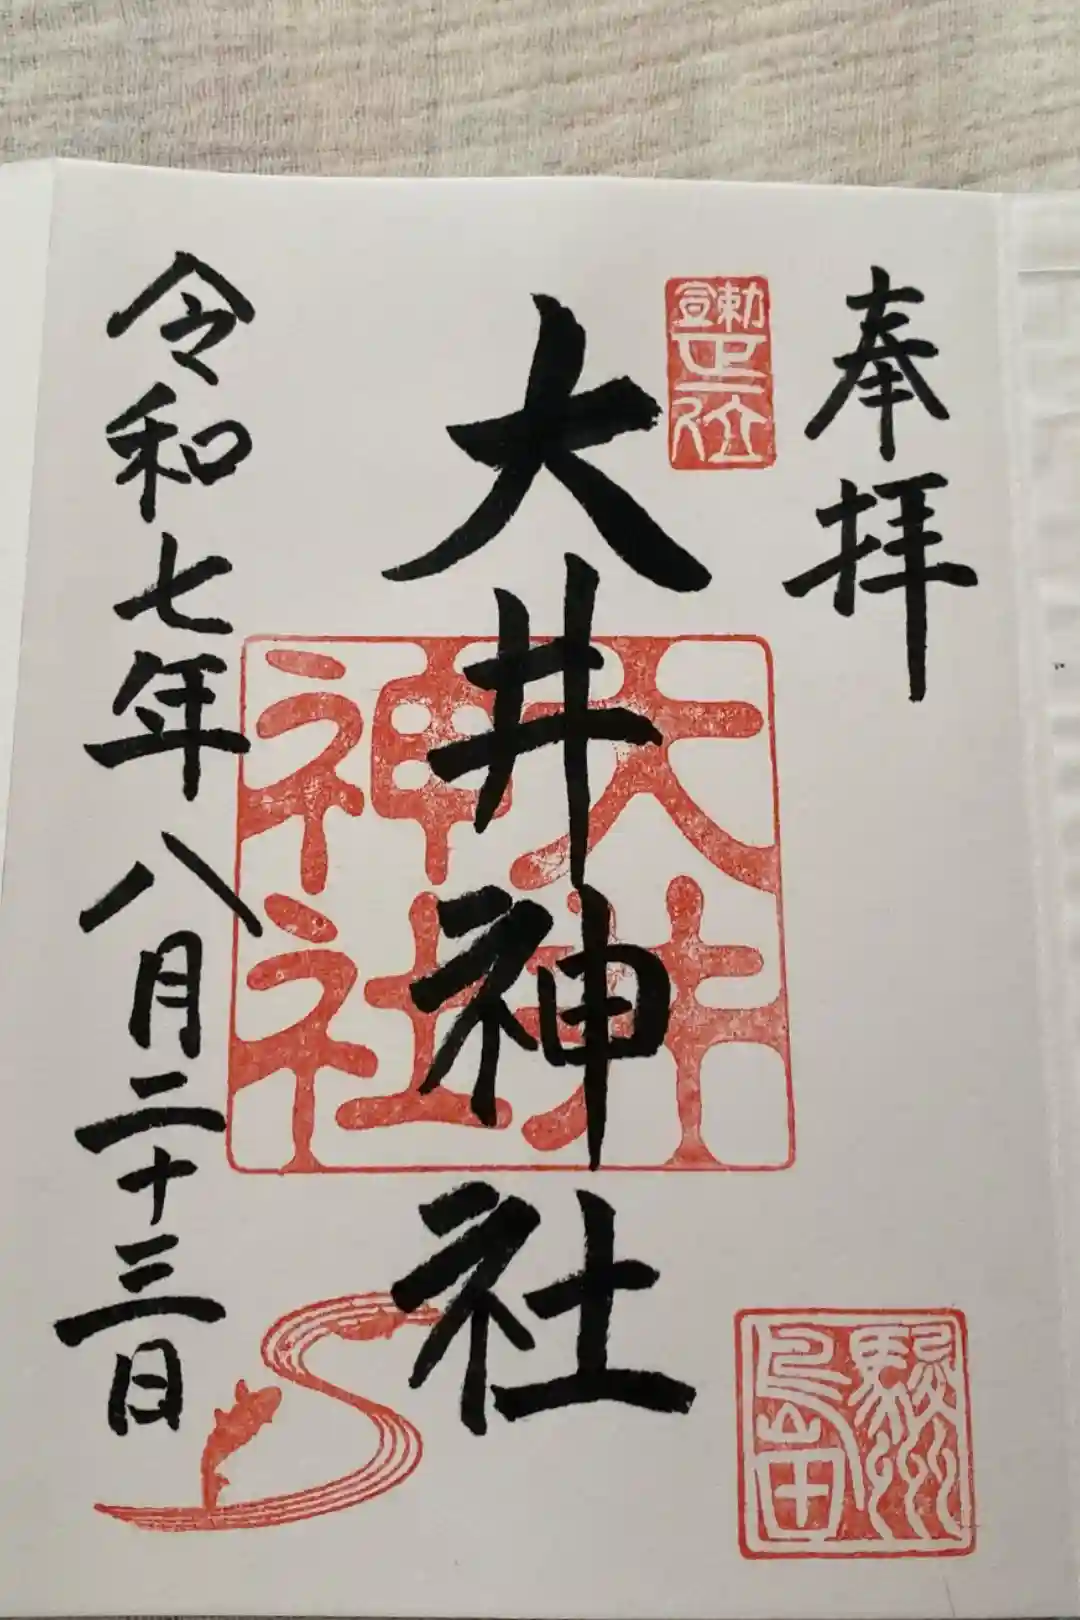 奉拝
勅宣正一位
駿州
島田
大井神社
大井
神社
令和七年八月二十三日